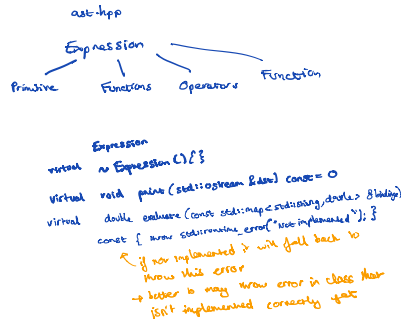 ast.hpp
Expression
Primitive Functions Operators Function
Expression
virtual ~ Expression () { }
virtual void print (std::ostream &dst) const = 0
virtual double evaluate (const std::map<std::string, double> &bindings)
const { throw std::runtime_error("Not implemented"); }
if not implemented it will fall back to
throw this error
→ better to may throw error in class that
isn't implemented correctly yet